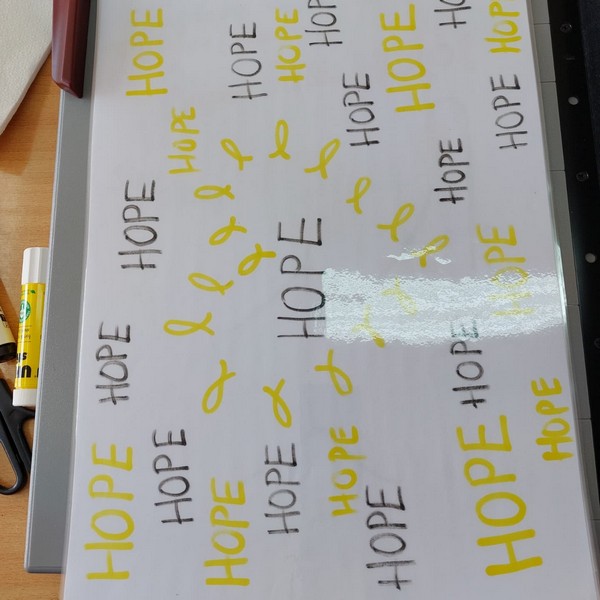 HOPE
HOPE
HOPE
HOPE
HOPE
HOPE
HOPE
HOPE
HOPE
HOPE
HOPE
HOP
HOPE
HOPE
HOPE
HOPE
HOPE
HO
HOPE
HOPE
HOPE
HOPE
HOPE
HOPE